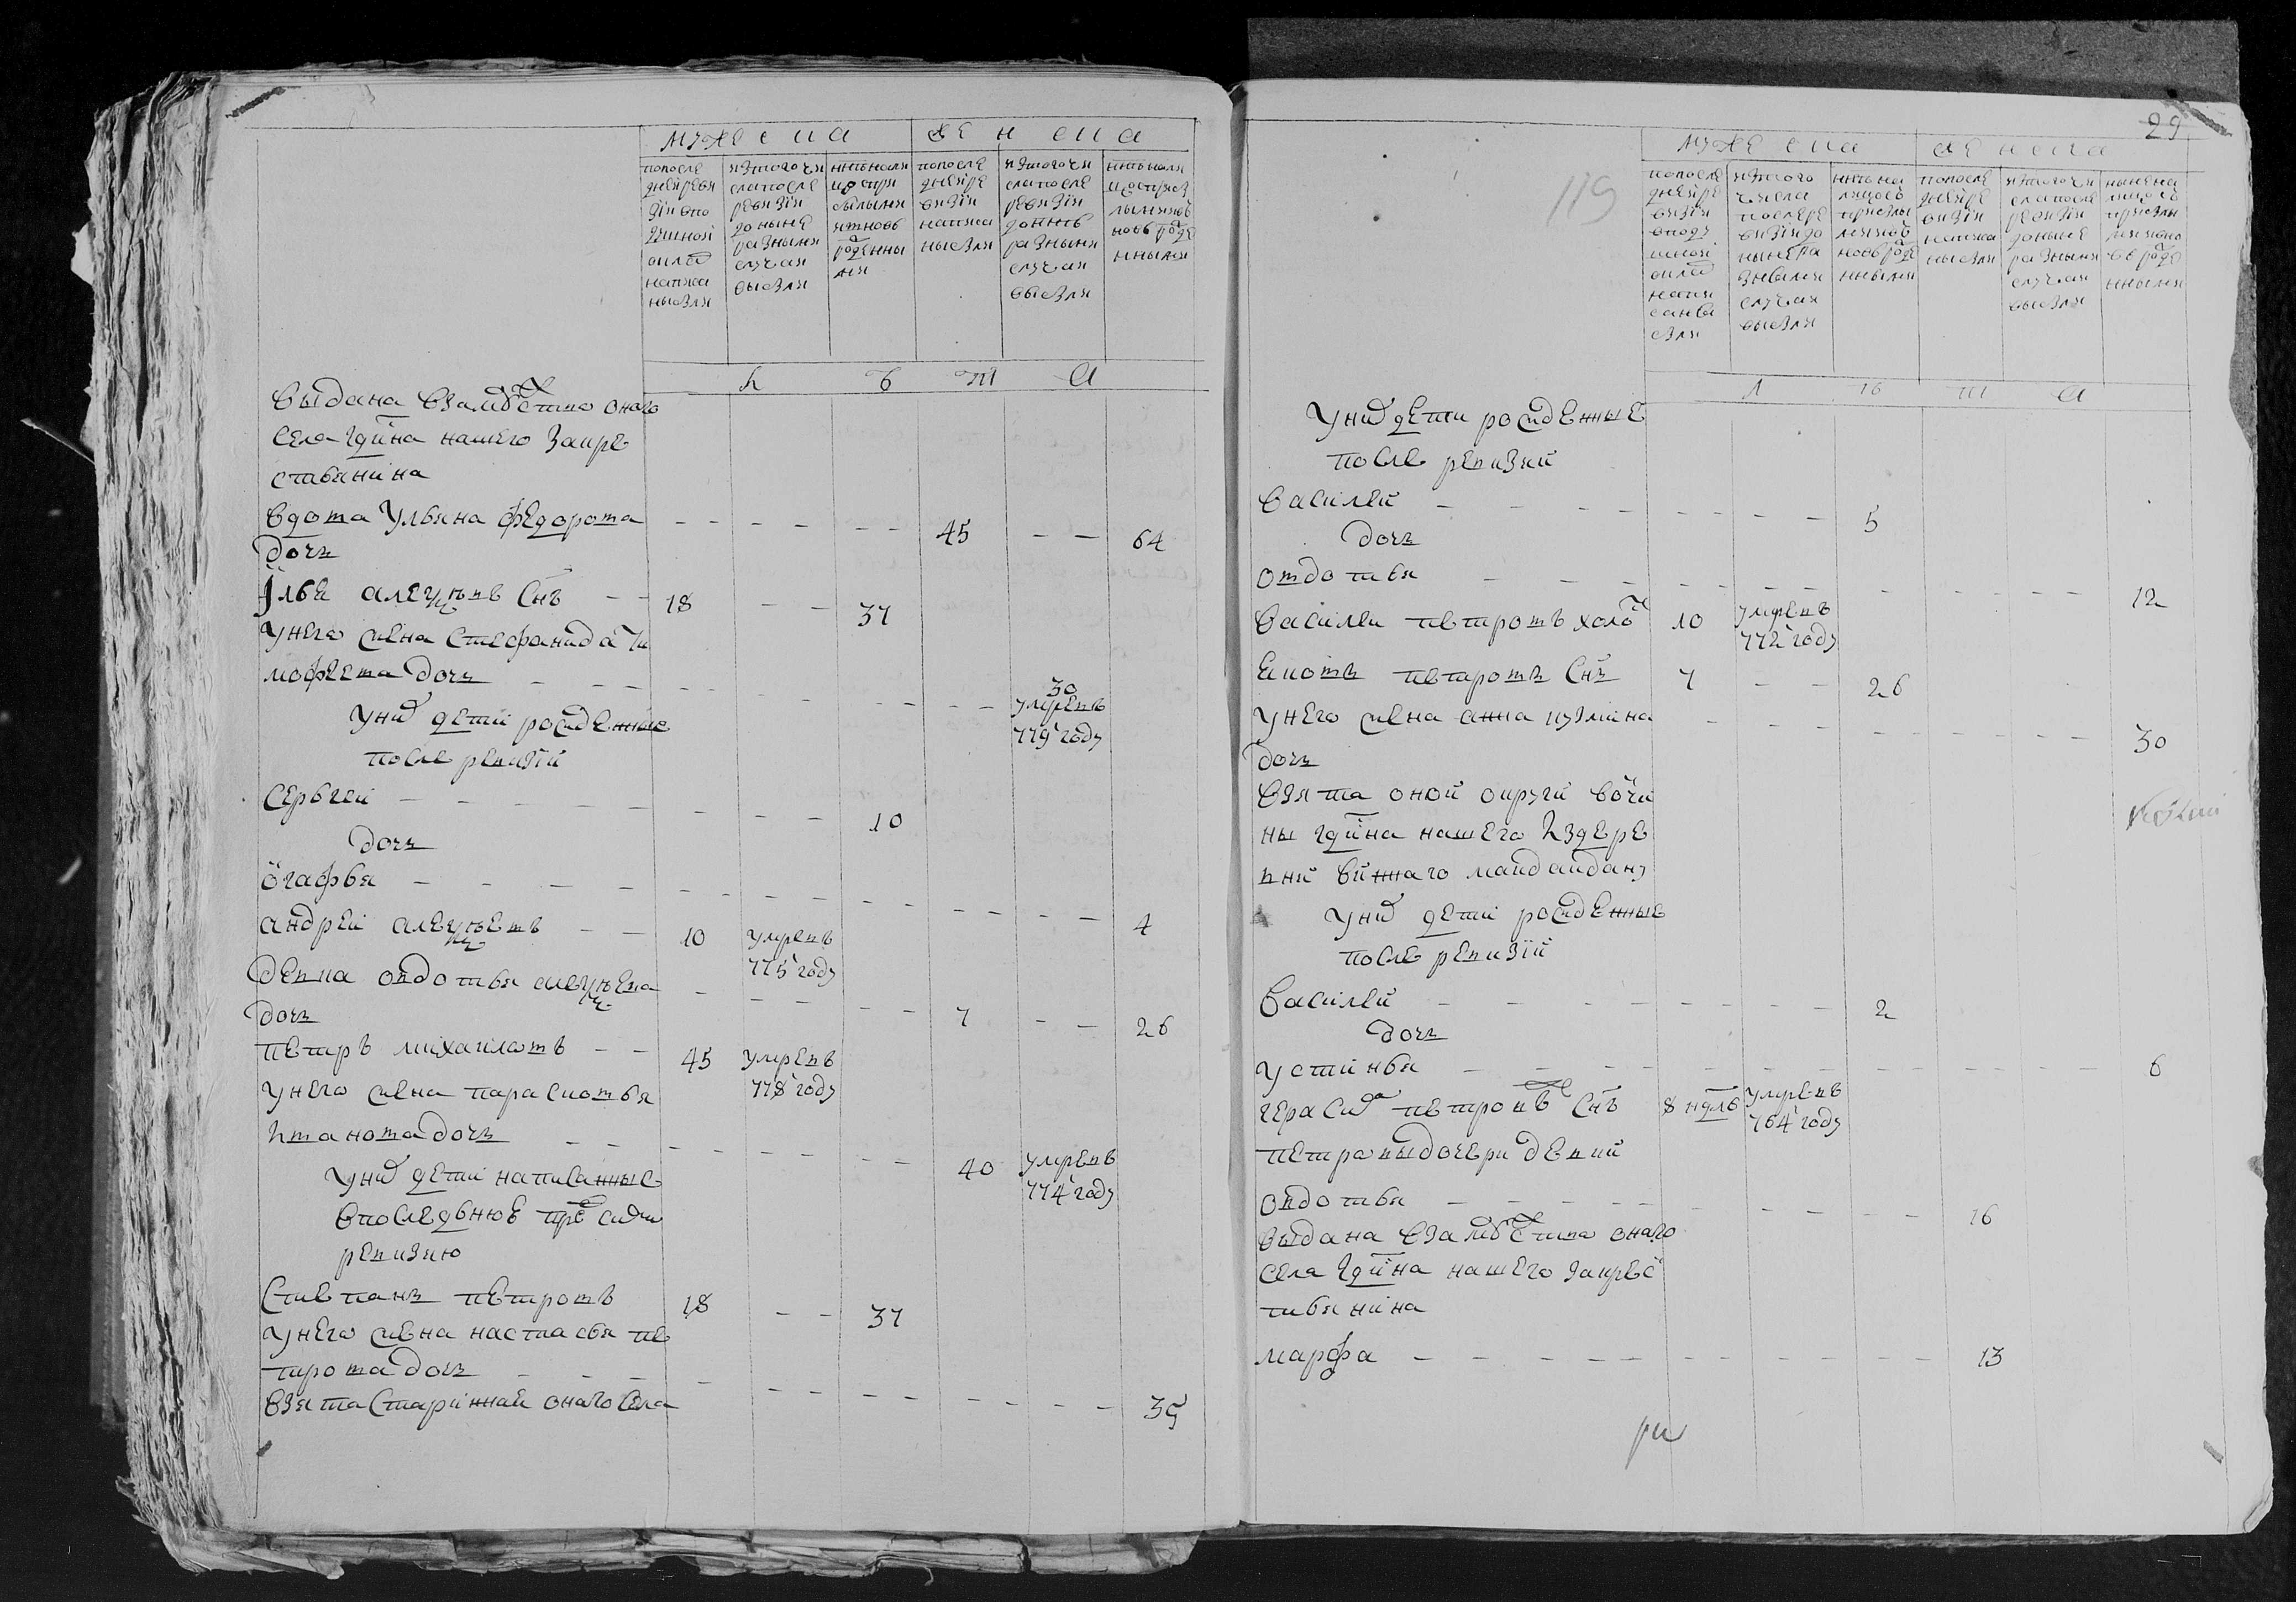 мужеска женска
попосле
дней реви
зіи впо
душной
окла
написа
ныбыли
изтого чи
сла после
ревизіи
доныне
разными
случаи
выбыли
нынѣ нали
цо спри
былыми
иновь
рожденны
ми
попосле
дней ре
визіи
написа
ныбыли
изтого чи
сла после
ревизіи
донынѣ
разными
случаи
выбыли
нынѣ нали
цо спрібы
лыми и
новь рожде
нными
л ѣ т а
выдана взамужство оного
села гдина нашего За кре
стьянина
вдова Ульяна федорова - - - - - - 45 - - 64
дочь
Илья алексѣевъ Снъ - - 18 - - 37
унего жена степанида ти
мофеева дочь - - - - - - - - - 30 умрепъ 779 году
уних дети рожденные
после ревизіи
Сергей - - - - - - - - 10
дочь
огафья - - - - - - - - - - - 4
андрей алексѣевъ - - 10 умревъ 775 году
девка овдотья алексѣева - - - - - - 7 - - 26
дочь
петръ михаиловъ - - 45 умревъ 778 году
унего жена парасковья
Иванова дочь - - - - - - - - 40 умревъ 774 году
уних дети написанные
впоследьнюю пред сим
ревизию
степанъ петровъ 18 - - 37
унего жена настасья пе
трова дочь - - - - - - - - - - 35
взята старинная оного села
29
119
мужеска женска
попосле
дней ре
визіи
вподу
шной
окла
напи
саны
были
изтого
числа
послере
визіи до
ныне ра
зными
случаи
выбыли
нынѣ на
лицо с
прибылы
ми и
новь рожде
нными
попосле
дней ре
визіи
написа
ныбыли
изтого чи
сла после
ревизіи
доныне
разными
случаи
выбыли
ныне на
лицо с
прибылы
ми ино
вь рожде
нными
л ѣ т а
уних дети рожденные
после ревизии
василей - - - - - - - - 5
дочь
овдотья - - - - - - - - - - - 12
василеи петровъ холо 10 умревъ 772 году
Яковъ петровъ Снъ 7 - - 26
унего жена анна кузмина - - - - - - - - 30
дочь
взята оной округи вотчи
ны гдина нашего Издере
вни винного майдайдану
уних дети рожденные
после ревизіи
василей - - - - - - - - 2
дочь
устинья - - - - - - - - - - - 6
герасим петровъ Снъ 8 ндль умревъ 764 году
петровы дочери девки
овдотья - - - - - - - - - - 16
выдана взамужство оного
села гдина нашего за крес
тьянина
марфа - - - - - - - - - - 13